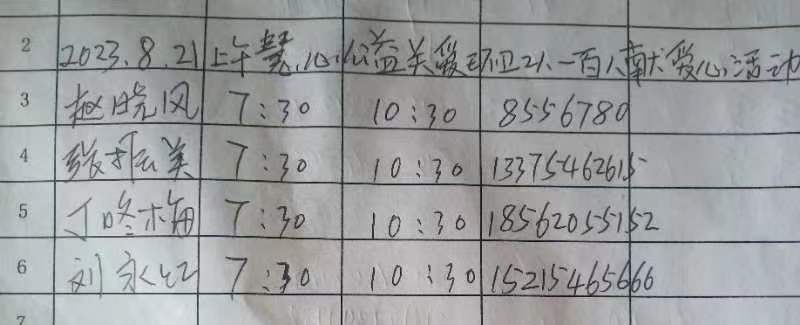 2 2023.8.21上午慧心公益关爱环卫工人一百人献爱心活动
3 赵晓凤 7:30 10:30 8556780
4 张美 7:30 10:30 13375462615
5 丁咚梅 7:30 10:30 18562055152
6 刘永红 7:30 10:30 15215465666
7